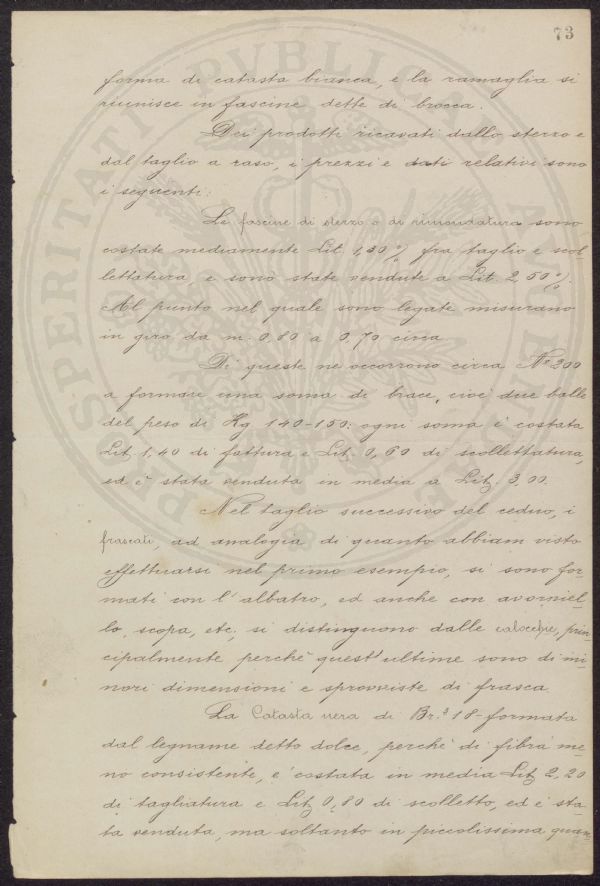 73
forma di catasta bianca, e la ramaglia si
riunisce in fascine dette di brocca.
Dei prodotti ricavati dallo sterzo e
dal taglio a raso, i prezzi e dati relativi sono
i seguenti:
Le fascine di sterzo o di rimondatura sono
costate mediamente Lit. 1,30 % fra taglio e scol-
lettatura e sono state vendute a Lit. 2,50 %.
Al punto nel quale sono legate misurano
in giro da m. 0,80 a 0,70 circa
Di queste ne occorrono circa No 200
a formare una soma di brace, cioè due balle
del peso di Kg 140-150: ogni soma è costata
Lit. 1,40 di fattura e Lit. 0,60 di scollettatura,
ed è stata venduta in media a Lit. 3,00.
Nel taglio successivo del ceduo, i
frascati, ad analogia di quanto abbiam visto
effettuarsi nel primo esempio, si sono for-
mati con l'albatro, ed anche con avorniel-
lo, scopa, etc, si distinguono dalle calocchie, prin-
cipalmente perchè quest'ultime sono di mi-
nori dimensioni e sprovviste di frasca.
La Catasta nera di Br.a 18- formata
dal legname detto dolce, perchè di fibra me-
no consistente, è costata in media Lit 2,20
di tagliatura e Lit 0,80 di scolletto, ed è sta-
ta venduta, ma soltanto in piccolissima quan-
PVBLICAE
PROSPERITATI